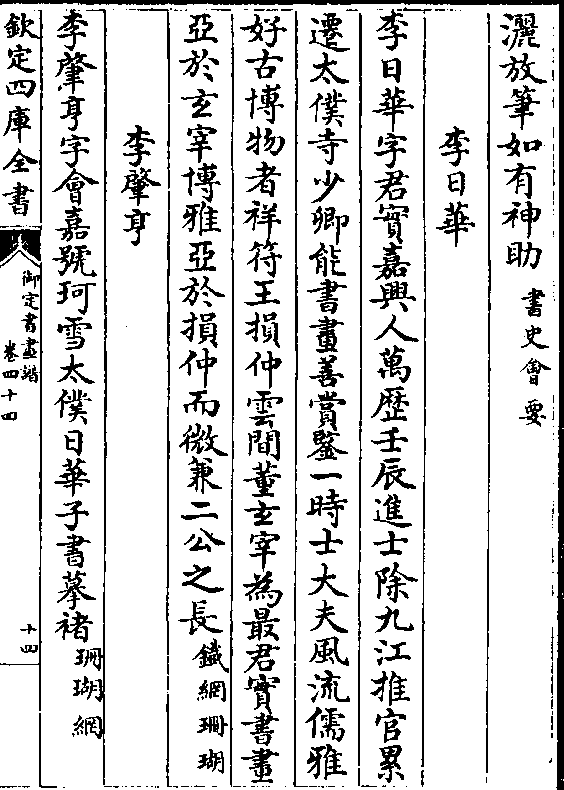 灑放筆如有神助 書史會要
李日華
李日華字君實嘉興人萬歷壬辰進士除九江推官累
遷太僕寺少卿能書畫善賞鑒一時士大夫風流儒雅
好古博物者祥符王損仲雲間董玄宰為最君實書畫
亞於玄宰博雅亞於損仲而微兼二公之長 鐵網珊瑚
李肇亨
李肇亨字會嘉號珂雪太僕日華子書摹褚 珊瑚網
欽定四庫全書
御定書畫譜
卷四十四
十四